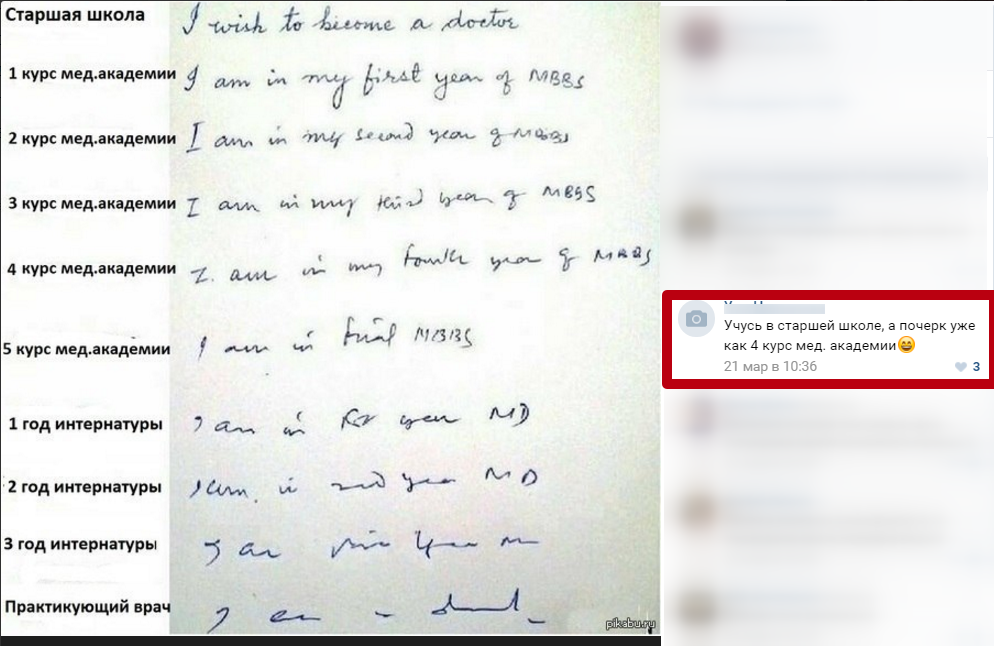 Старшая школа I wish to become a doctor
1 курс мед.академии I am in my first year of MBBS
2 курс мед.академии I am in my second year of MBBS
3 курс мед.академии I am in my third year of MBBS
4 курс мед.академии I am in my fourth year of MBBS
5 курс мед.академии I am in final MBBS
1 год интернатуры I am in year MD
2 год интернатуры I am in 2nd year MD
3 год интернатуры I am
Практикующий врач I am
pikabu.ru
Учусь в старшей школе, а почерк уже
как 4 курс мед. академии😄
21 мар в 10:36
3